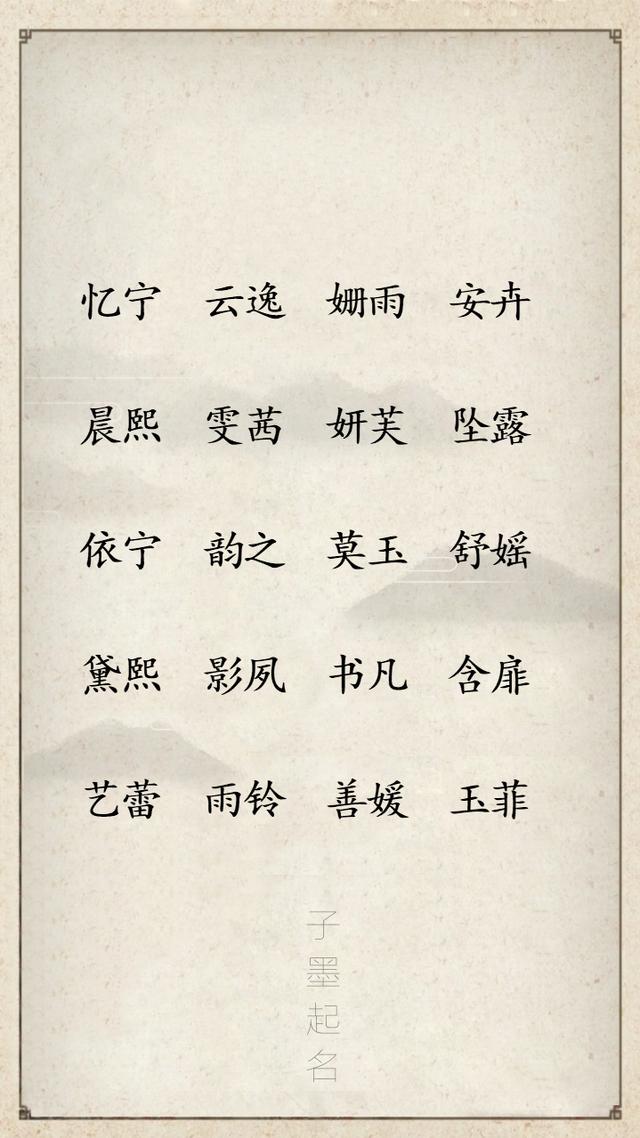 忆宁 云逸 姗雨 安卉
晨熙 雯茜 妍芙 坠露
依宁 韵之 莫玉 舒媱
黛熙 影夙 书凡 含扉
艺蕾 雨铃 善媛 玉菲
子墨起名